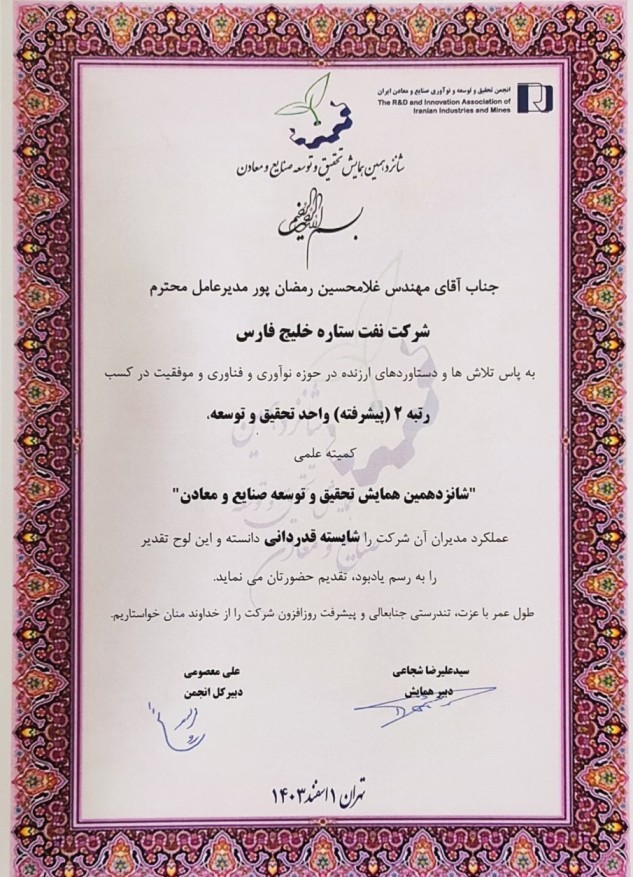 انجمن تحقیق و توسعه و نوآوری صنایع و معادن ایران
The R&D and Innovation Association of
Iranian Industries and Mines
شانزدهمین همایش تحقیق و توسعه صنایع و معادن
بسم الله الرحمن الرحیم
جناب آقای مهندس غلامحسین رمضان پور مدیرعامل محترم
شرکت نفت ستاره خلیج فارس
به پاس تلاش ها و دستاوردهای ارزنده در حوزه نوآوری و فناوری و موفقیت در کسب
رتبه ۲ (پیشرفته) واحد تحقیق و توسعه،
کمیته علمی
"شانزدهمین همایش تحقیق و توسعه صنایع و معادن"
عملکرد مدیران آن شرکت را شایسته قدردانی دانسته و این لوح تقدیر
را به رسم یادبود، تقدیم حضورتان می نماید.
طول عمر با عزت، تندرستی جنابعالی و پیشرفت روزافزون شرکت را از خداوند منان خواستاریم.
سیدعلیرضا شجاعی
دبیر همایش
علی معصومی
دبیر کل انجمن
تهران ۱ اسفند ۱۴۰۳